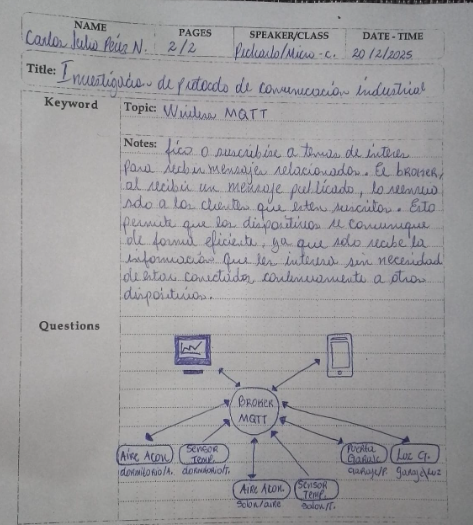 NAME PAGES SPEAKER/CLASS DATE - TIME
Carlos Julio Pérez N. 2/2 Pichardo/Micro-C. 20/2/2025
Title: Investigación de protocolo de comunicación industrial
Keyword Topic: Wireless MQTT
Notes: fico o suscribirse a temas de interés
para recibir mensajes relacionados. El broker,
al recibir un mensaje publicado, lo reenvia
solo a los clientes que esten suscritos. Esto
permite que los dispositivos se comuniquen
de forma eficiente, ya que solo recibe la
información que les interesa sin necesidad
de estar conectados continuamente a otros
dispositivos.
Questions
BROKER
MQTT
AIRE ACON.
DORMITORIO/A.
SENSOR
TEMP.
DORMITORIO/T.
AIRE ACON.
salon/aire
SENSOR
TEMP.
SALON/T.
PUERTA
GARAJE
GARAJE/P.
LUZ G.
garaje/luz